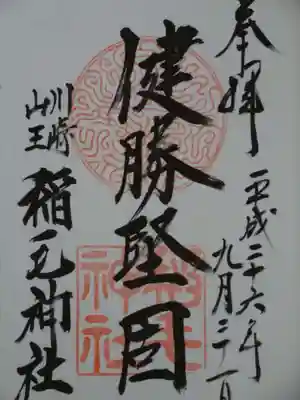 奉拝
平成二十六年
九月二十一日
健勝堅固
川崎
山王
稲毛神社
稲毛神社